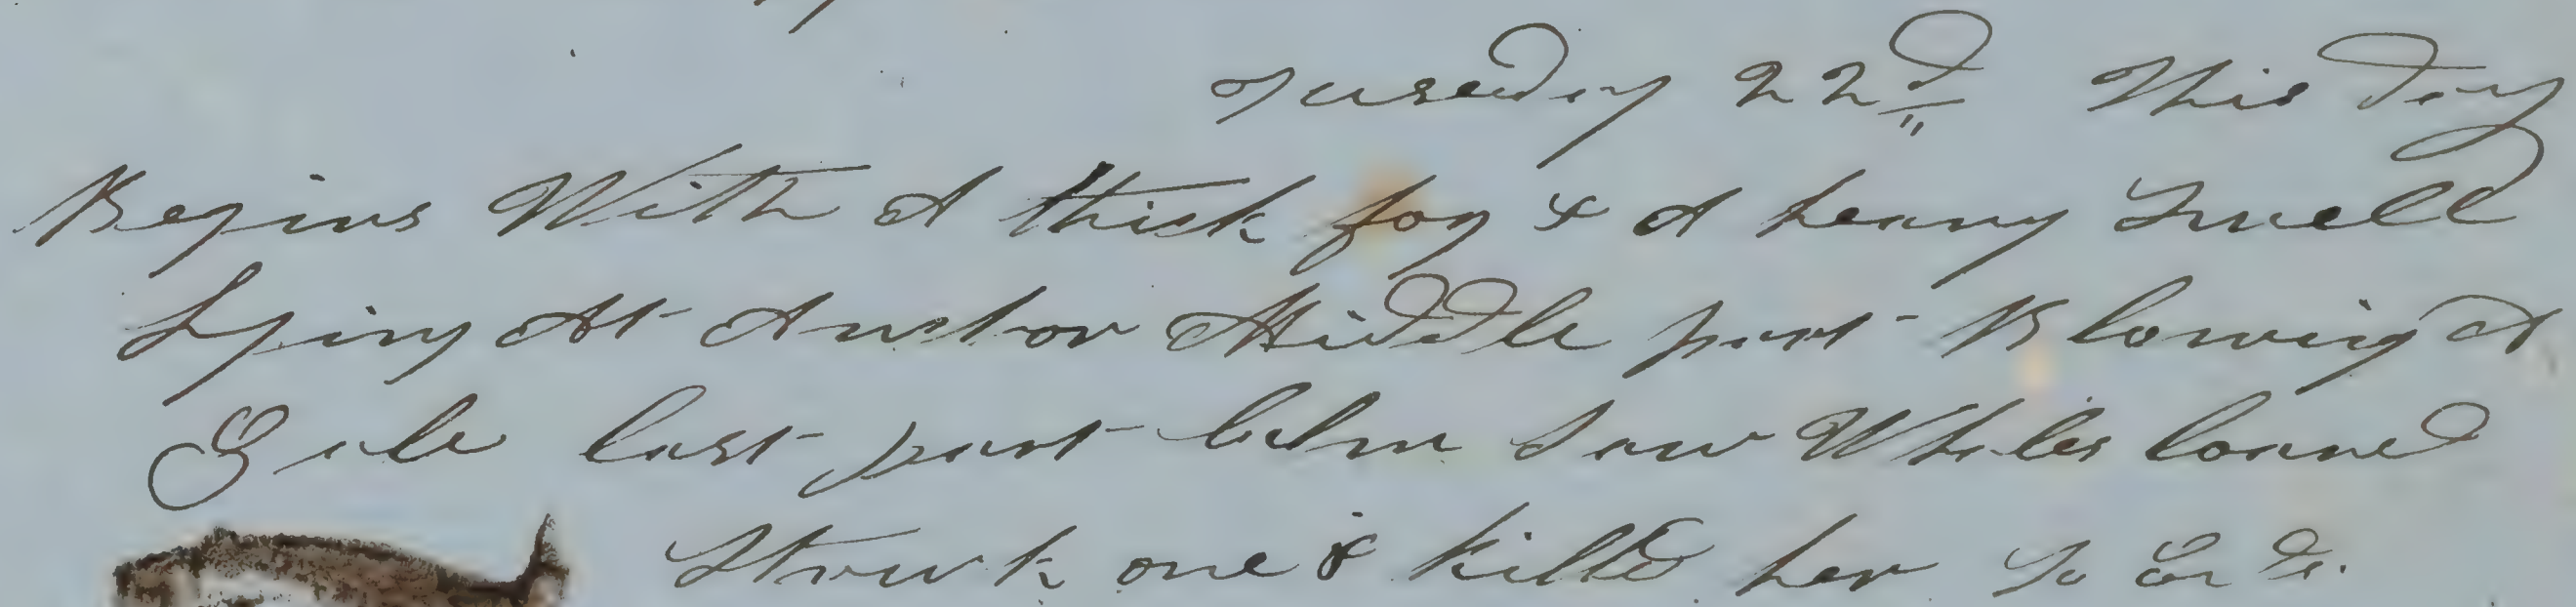 Tuseday 22d This day
Begins With A thick fog & A heavy Swell
Lying At Anchor Middle part Blowing A
Gale last part Calm Saw Whales loared
Struck one & killed her So Ends.